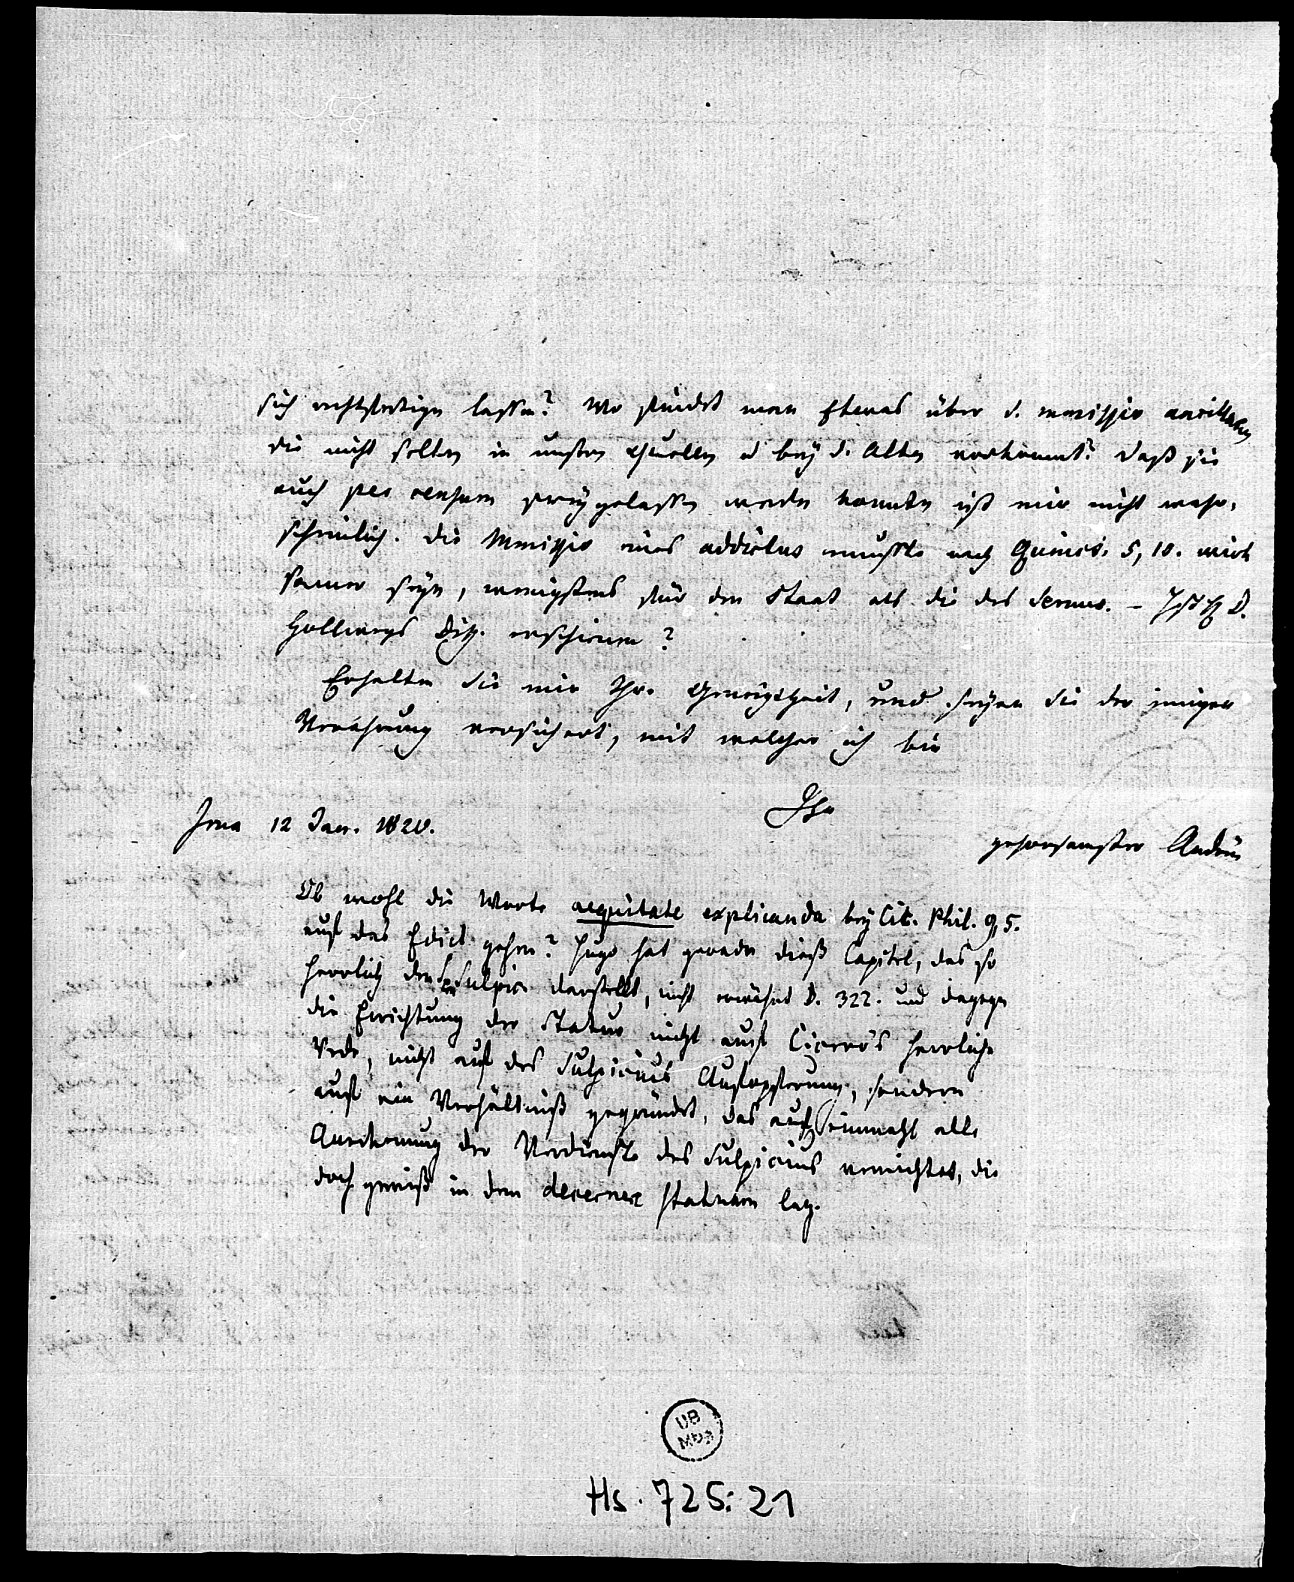 sich rechtfertigen lassen? Wo findet man Etwas über d. manissio ancillarum
die nicht selten in unsern Quellen u bey d. Alten vorkommt? Daß sie
auch per censum freygelassen werden konnten ist mir nicht wahr-
scheinlich. Die Mmissio eines addictus mußte nach Quinct. 5, 10. wirk
samer seyn, wenigstens für den Staat als die des Servus. – Ist
Hollwegs Diss. erschienen?
Erhalten Sie mir Ihre Geneigtheit, und seyen Sie der innigen
Verehrung versichert, mit welcher ich bin
Ihr
Jena 12 Jan. 1820.
gehorsamster
Ob wohl die Worte aequitate explicanda bey Cic. Phil. 9, 5.
auf das Edict gehen? Hugo hat gerade dieß Capitel, das so
herrlich den Sulpic. darstellt, nicht erwähnt S. 322. und dagegen
die Errichtung der Statue nicht auf Cicero's herrliche
Rede, nicht auf des Sulpicius Aufopferung, sondern
auf ein Verhältniß gegründet, das auf einmahl alle
Anerkennung der Verdienste des Sulpicius vernichtet, die
doch gewiß in dem decernere statuam lag.
UB
MBG
Hs. 725:21